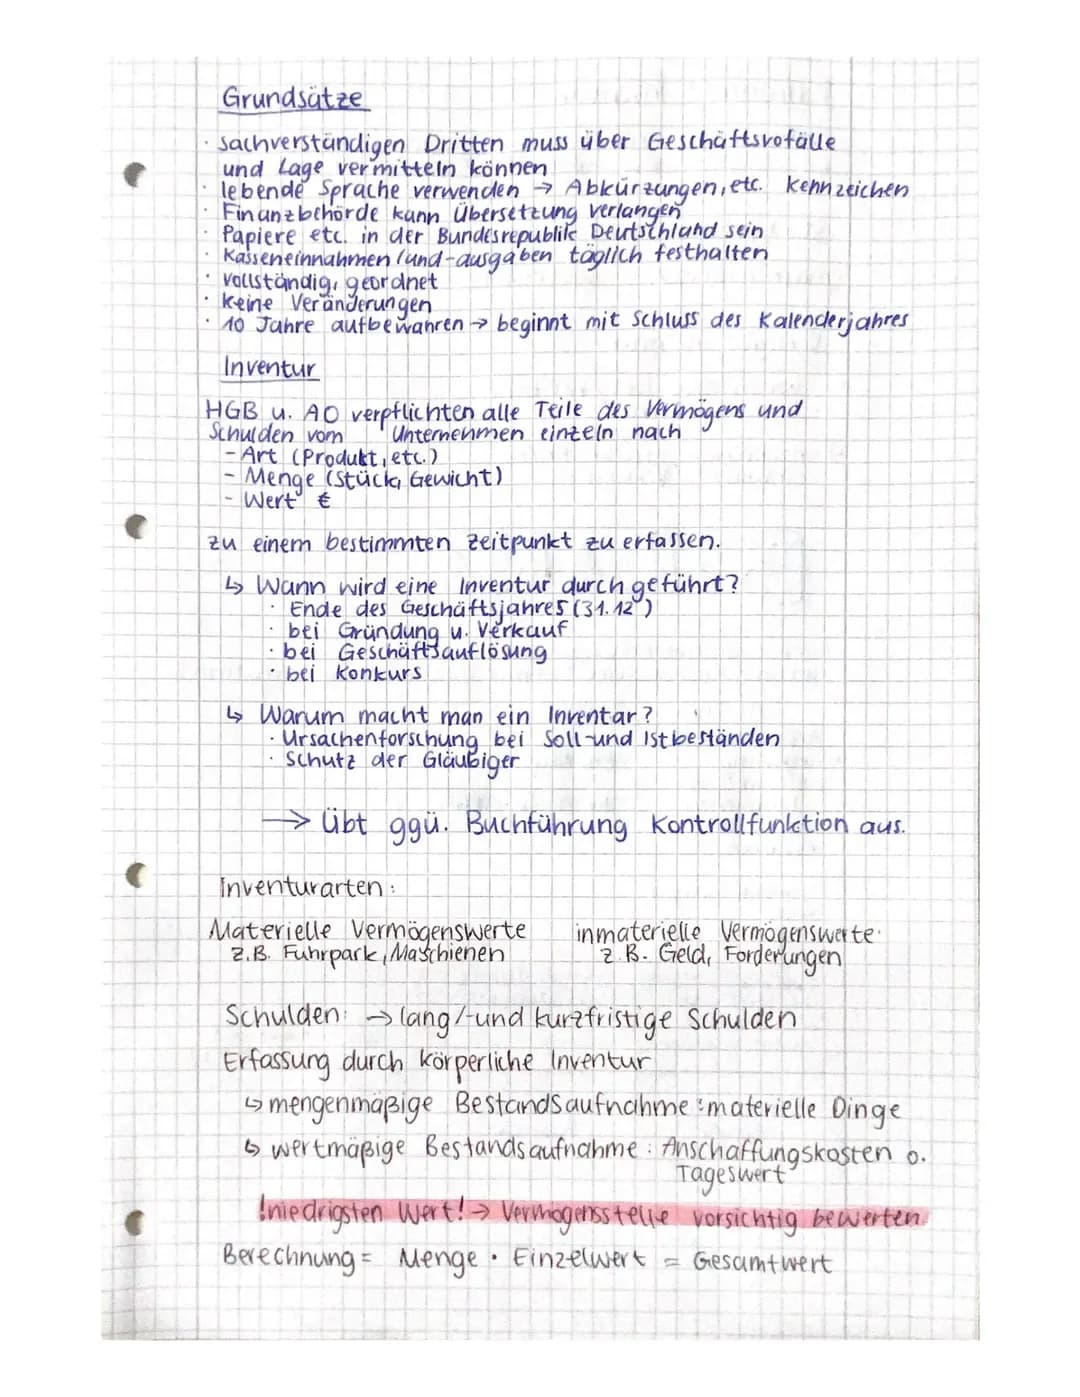 Grundsätze
· sachverständigen Dritten muss über Geschäftsvofälle
und Lage vermitteln können
· lebende Sprache verwenden → Abkürzungen, etc. kennzeichen
· Finanzbehörde kann Übersetzung verlangen
· Papiere etc. in der Bundesrepublik Deutschland sein
· Kasseneinnahmen/und-ausgaben täglich festhalten
· vollständig, geordnet
· keine Veränderungen
· 10 Jahre aufbewahren → beginnt mit Schluss des Kalenderjahres
Inventur
HGB u. AO verpflichten alle Teile des Vermögens und
Schulden vom Unternehmen einzeln nach
- Art (Produkt, etc.)
- Menge (Stück, Gewicht)
- Wert €
zu einem bestimmten Zeitpunkt zu erfassen.
↳ Wann wird eine Inventur durchgeführt?
· Ende des Geschäftsjahres (31.12.)
· bei Gründung u. Verkauf
· bei Geschäftsauflösung
· bei Konkurs
↳ Warum macht man ein Inventar?
· Ursachenforschung bei Soll-und Istbeständen
· Schutz der Gläubiger
→ Übt ggü. Buchführung Kontrollfunktion aus.
Inventurarten:
Materielle Vermögenswerte inmaterielle Vermögenswerte
z.B. Fuhrpark, Maschienen z.B. Geld, Forderungen
Schulden: → lang/-und kurzfristige Schulden
Erfassung durch körperliche Inventur
↳ mengenmäßige Bestandsaufnahme: materielle Dinge
↳ wertmäßige Bestandsaufnahme: Anschaffungskosten o.
Tageswert
!niedrigsten Wert! → Vermögensstelle vorsichtig bewerten
Berechnung = Menge · Einzelwert = Gesamtwert